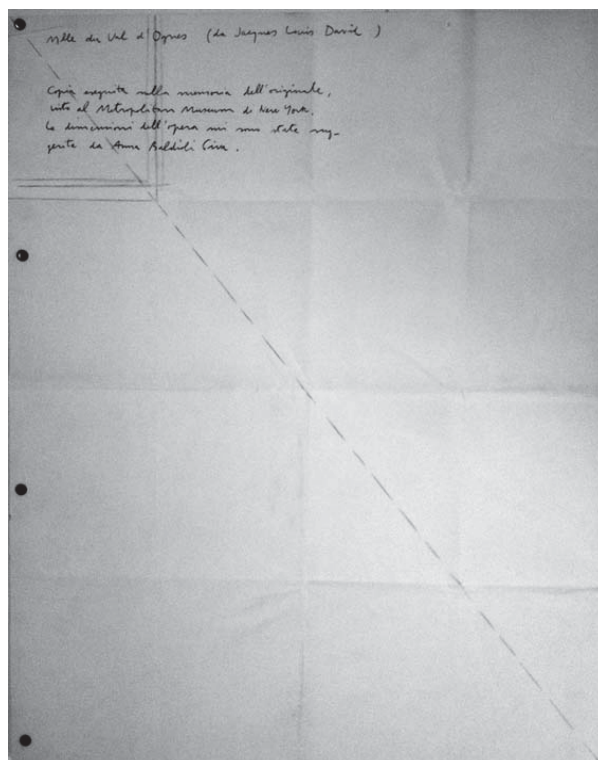 Mlle du Val d'Ognes (da Jacques Louis David )
Copia eseguita sulla memoria dell'originale,
visto al Metropolitan Museum di New York.
Le dimensioni dell'opera mi sono state sug-
gerite da Anna Baldili